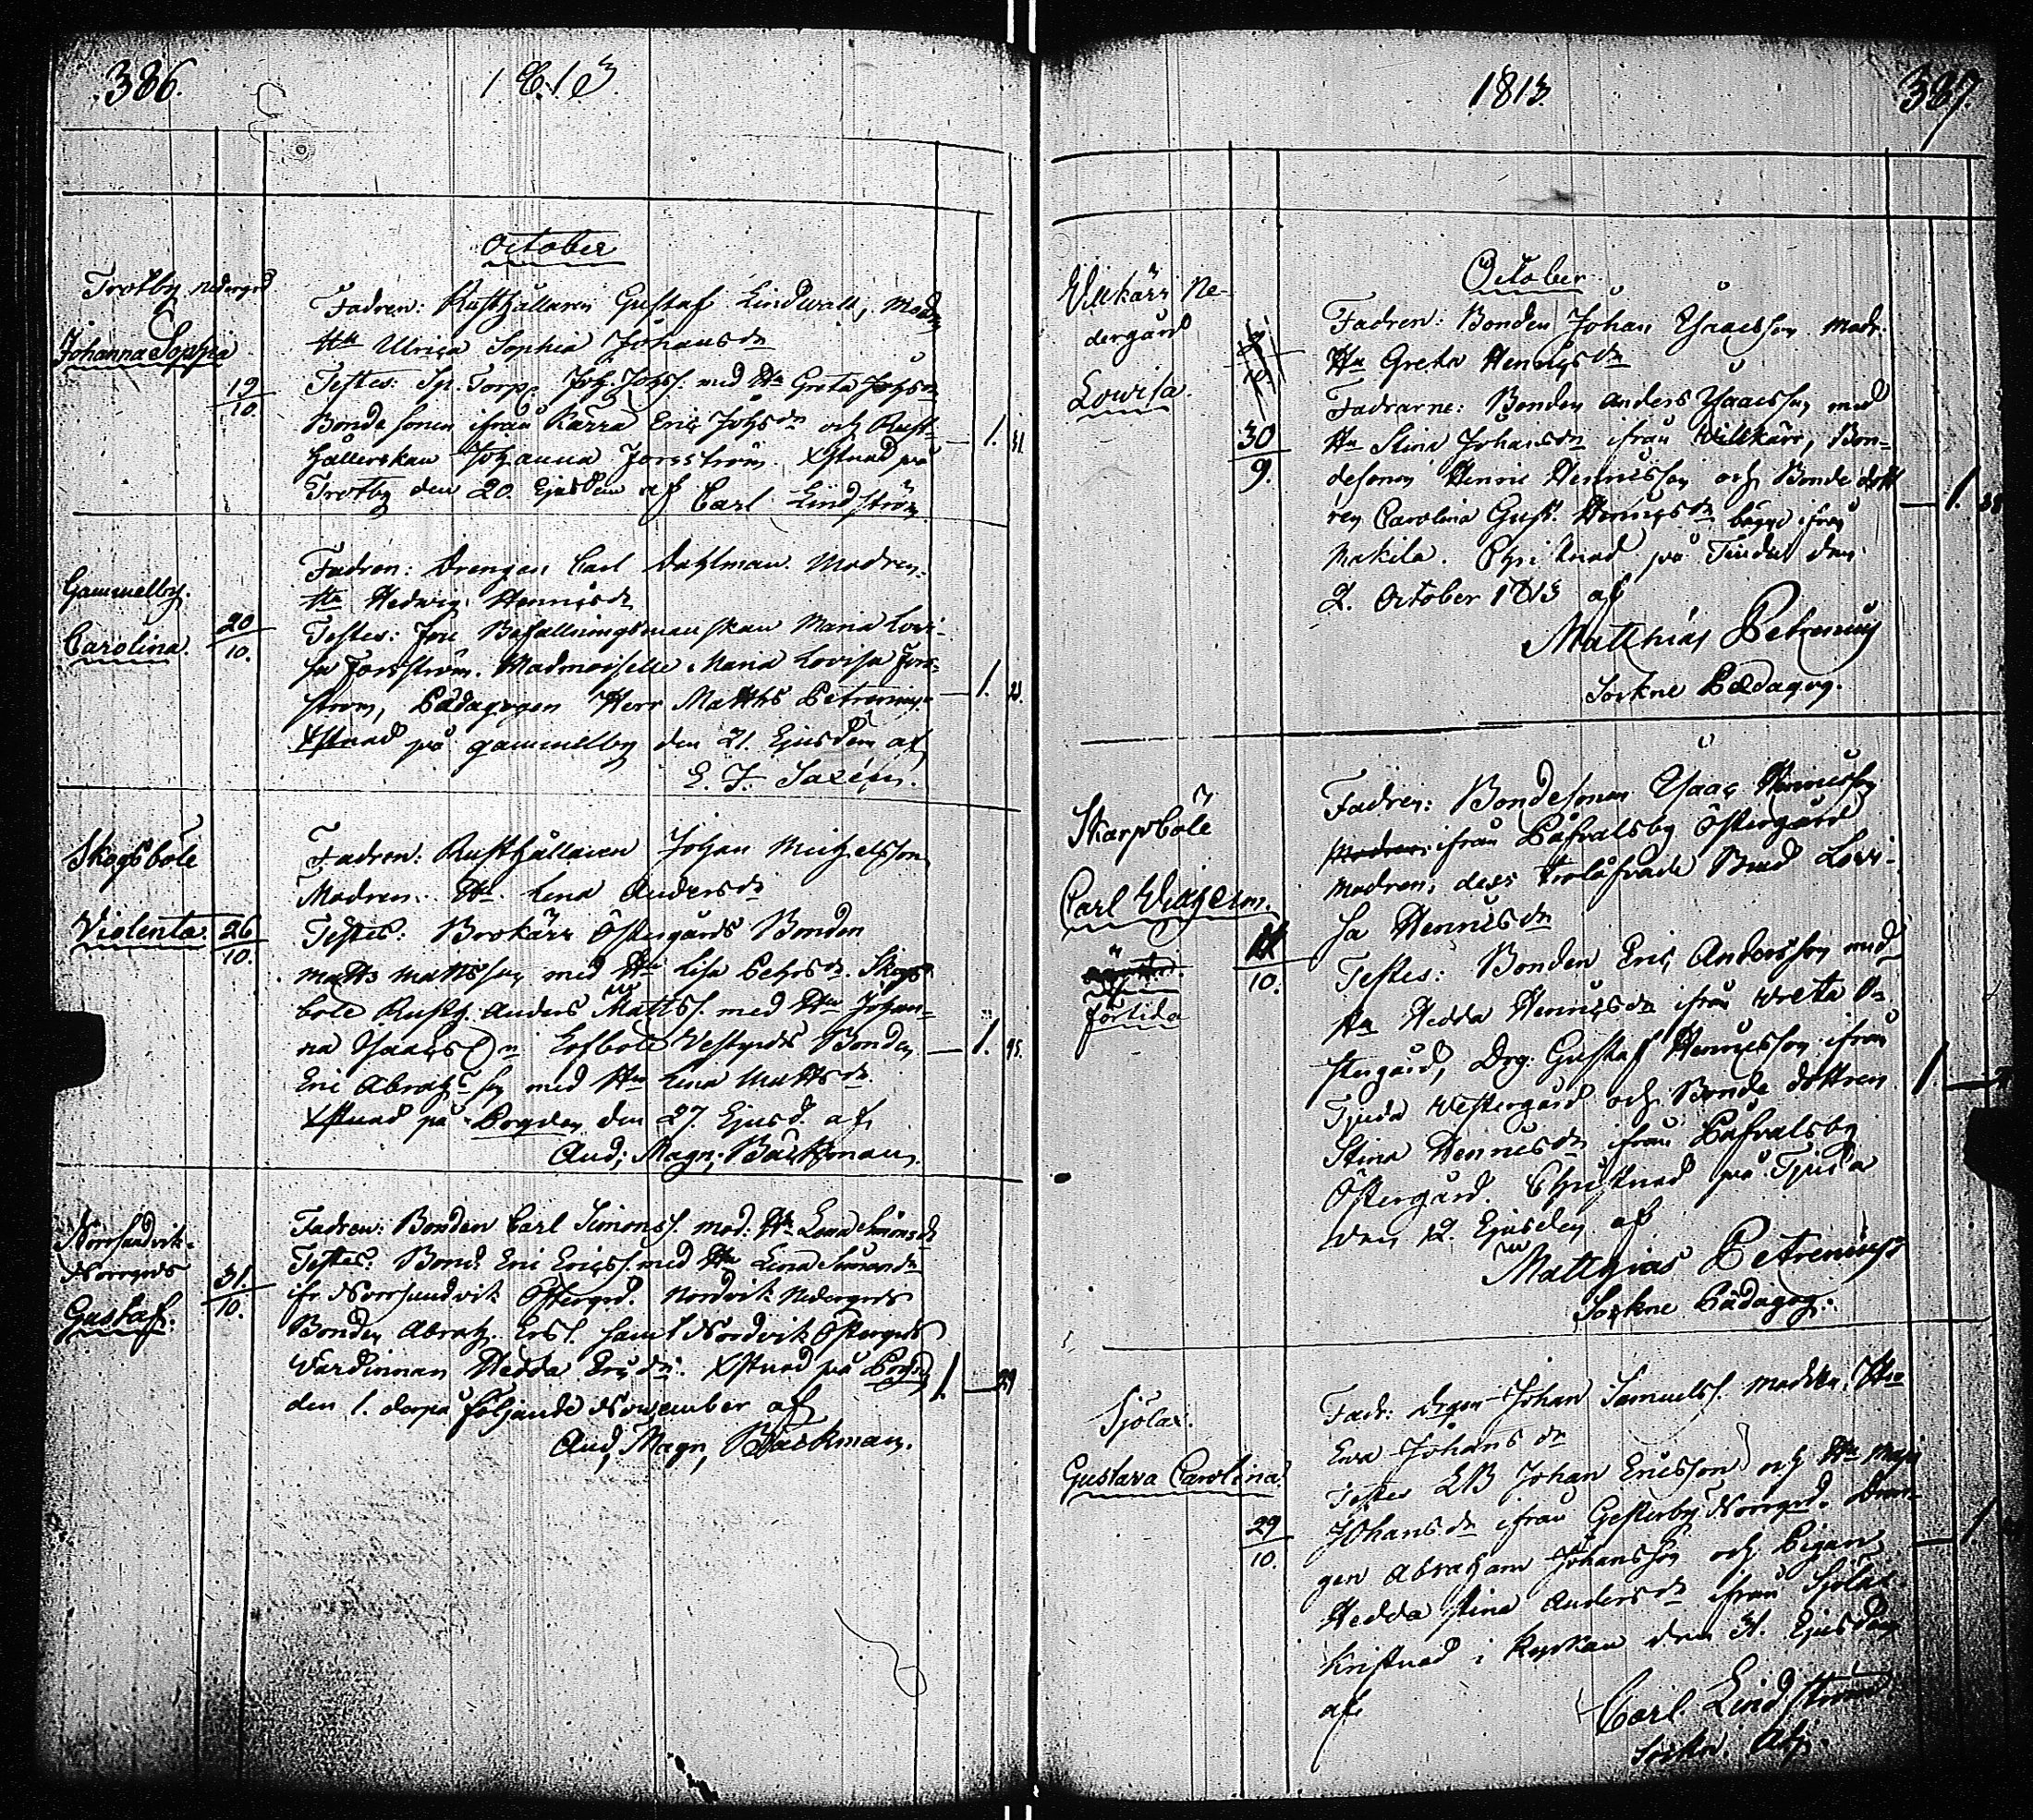 386.
1813.
October
Trotby Nedergrd
Johanna Sophia
19
10.
Fadren: Rusthållaren Gustaf Lindwall, Modren
Hu Ulrica Sophia Johansdr
Testes: Sp. Torp. Joh. Johss. med Hu Greta Johsdr
Bonde sonen ifrån Kärra Eric Johs och Rust-
hållerskan Johanna Forsström. Xstnad på
Trotby den 20. Ejusdem af Carl Lindström
1. 31.
Gammelby.
Carolina.
20
10.
Fadren: Drengen Carl Dahlman Modren
Hu Hedwig Henricsdr
Testes: Befallningsmanskan Maria Lovi-
sa Forsström. Madmoiselle Maria Lovisa Fors-
ström, Pädagogen Herr Matths Petrenius
Xstnad på Gammelby den 21. Ejusdem af
1. 23.
Skogsböle
Violenta
26
10.
Fadren: Rusthållaren Johan Michelsson
Modren. Hu. Lena Andersdr
Testes: Brokärr Östergårds Bonden
Matts Mattsson med Hu Lisa Pehrsdr. Skogs-
böle Rusth. Anders Mattss. med Hu Johan-
na Isaacsdr Löfböle Westgrds Bonden
Eric Abrahsson med Hu Lena Mattsdr.
Xstnad på Borgden den 27. Ejusd. af
And. Magn. Bäckman.
1. 45.
Norrsundvik
Norrgrds
Gustaf.
31
10.
Fadren: Bonden Carl Simonss. mod. Hu Lena Simonsdr
Testes: Bond. Eric Ericss. med Hu Lena Simonsdr
ifr Norrsundvik Östergrd. Nordvik Nedergrds
Bonden Abrah. Erss. samt Nordvik Östergrds
Wärdinnan Hedda Ericsdr. Xstnad på
den 1. derpå följande November af
And. Magn. Bäckman.
1. 29
1813.
387.
October
Willkärr Ne-
dergård
Lowisa.
30
9.
Fadren: Bonden Johan Isaacsson Modr.
Hu Greta Henricsdr
Faddrarne: Bonden Anders Isaacsson med
Hu Stina Johansdr ifrån Willkärr, Bon-
desonen Henric Henricsson och Bonde dott-
ren Carolina Gust. Henricsdr bägge ifrån
Makila. Christnad på Tjuda den
2. October 1813 af
Matthias Petrenius
Sockne Pædagog.
1. 38
Skarpböle
Carl Wilhelm.
förtida
11
10.
Fadren: Bondesonen Isaac Henricsson
Modren: ifrån Påfvalsby Östergård
Modren: dess trolofvade Brud Lovi-
sa Henricsdr
Testes: Bonden Eric Andersson med
Hu Hedda Henricsdr ifrån Wreta Ö-
stergård, Drg: Gustaf Henricsson ifrån
Tjuda Westergård och Bonde dottren
Stina Henricsdr ifrån Påfvalsby
Östergård. Christnad på Tjuda
den 12. Ejusdem af
Matthias Petrenius
Sockne Pädagog.
1.
Sjölax.
Gustava Carolina.
29
10.
Fadr: drgen Johan Samuelss. Modren Hu
Ewa Johansdr
Testes LB Johan Ericsson och Hu Maja
Johansdr ifrån Gesterby Norrgrd. Dren-
gen Abraham Johansson och Pigan
Hedda Stina Andersdr ifrån Sjölax
kristnad i kyrkan den 31. Ejusdem
af.
Carl Lindström
1